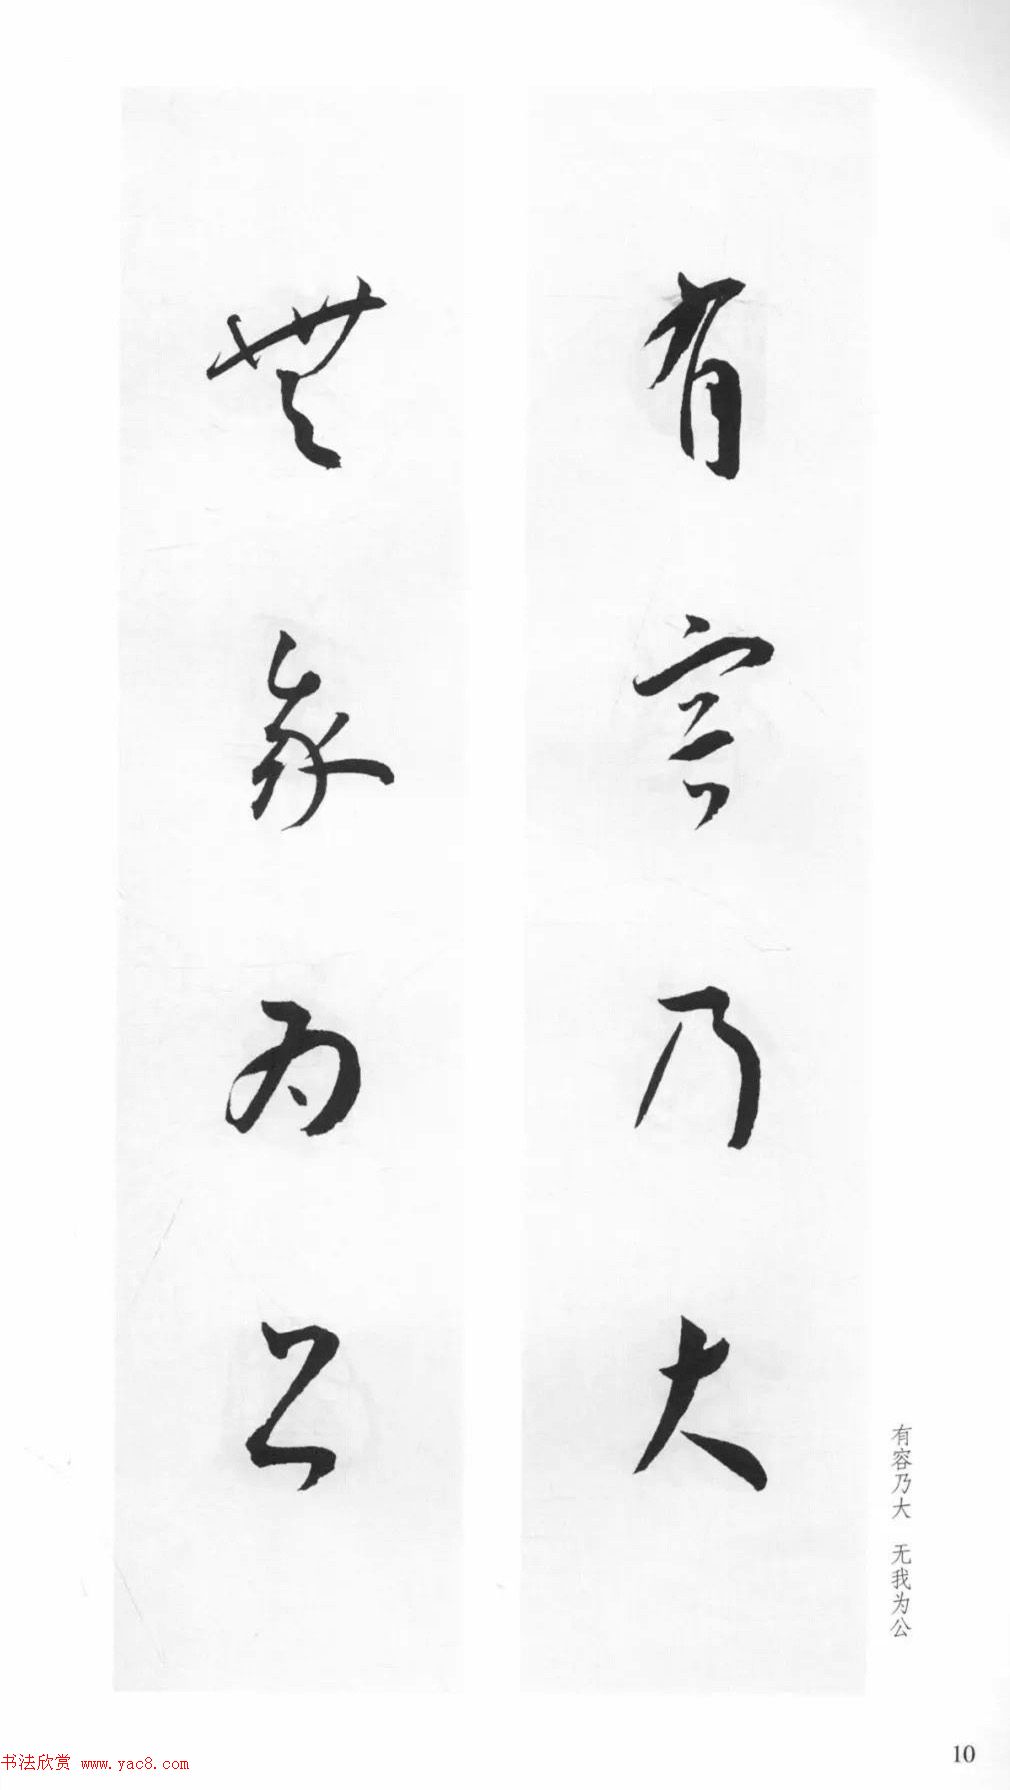 有容乃大
無我为公
有容乃大 无我为公
10
书法欣赏 www.yac8.com